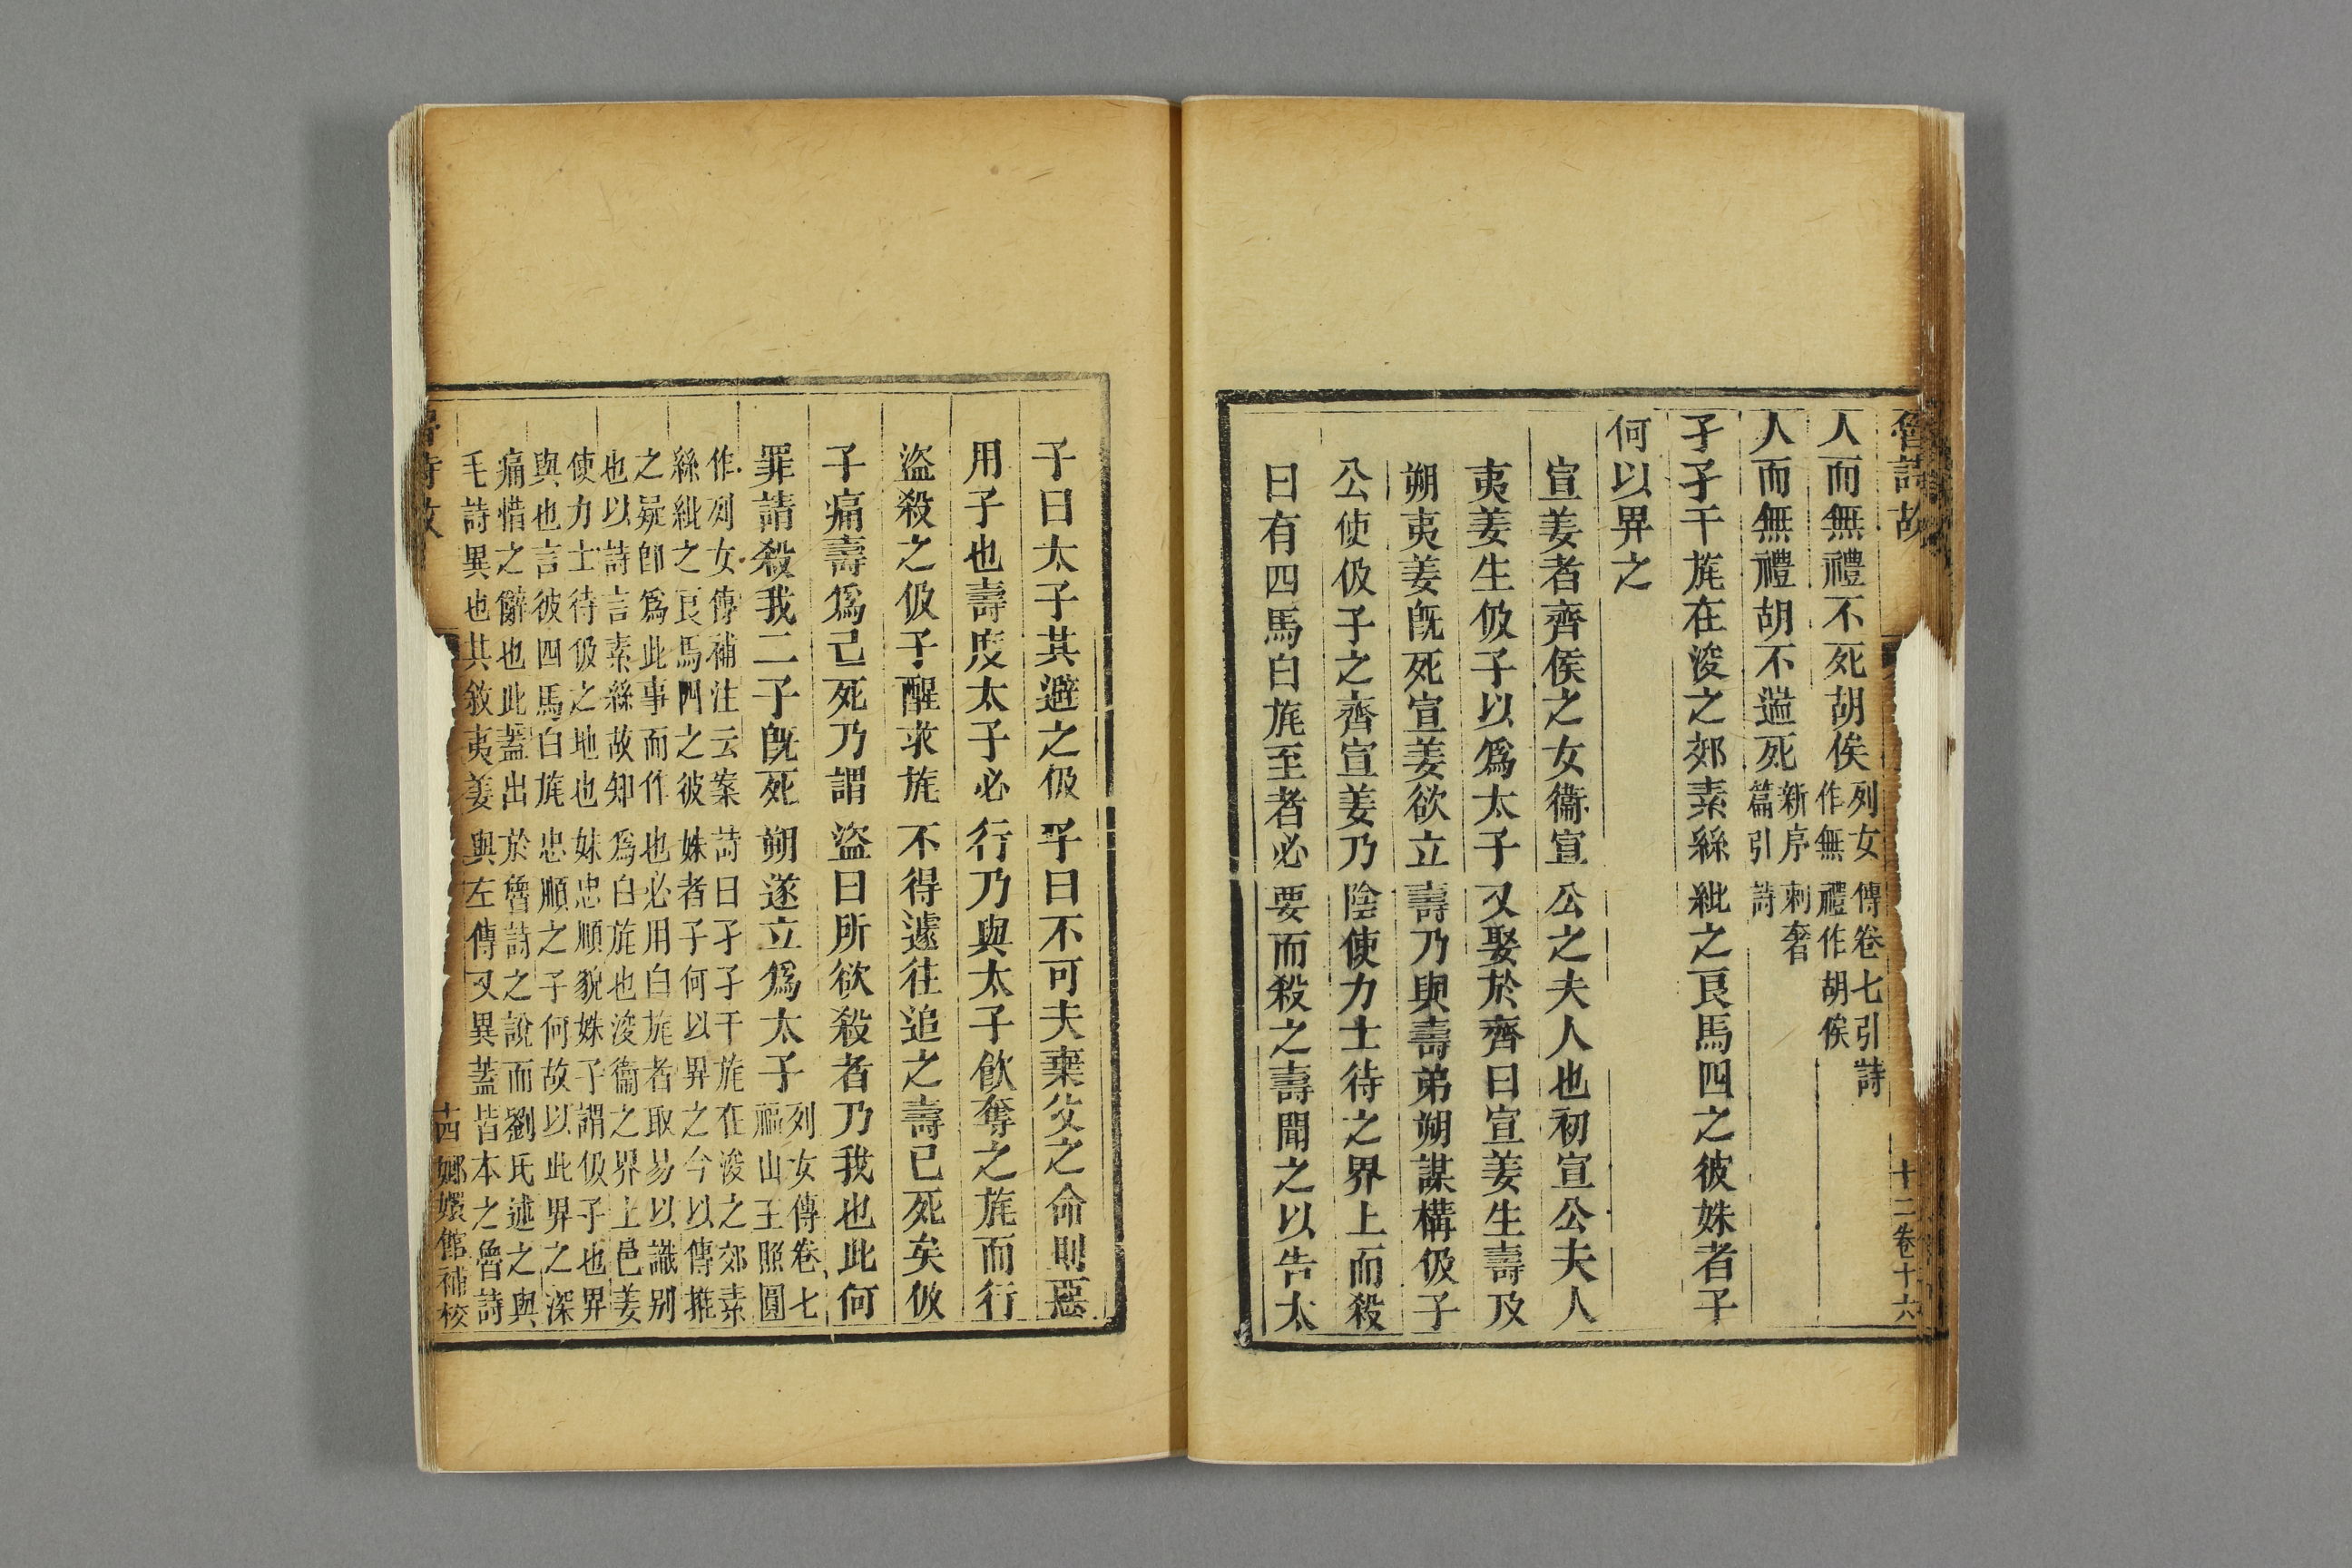 魯詩故
十二卷十六
人而無禮不死胡俟列女傳卷七引詩
作無禮作胡俟
人而無禮胡不遄死新序刺奢
篇引詩
孑孑干旄在浚之郊素絲紕之良馬四之彼姝者子
何以畀之
宣姜者齊侯之女衞宣公之夫人也初宣公夫人
夷姜生伋子以爲太子又娶於齊曰宣姜生壽及
朔夷姜旣死宣姜欲立壽乃與壽弟朔謀構伋子
公使伋子之齊宣姜乃陰使力士待之界上而殺
曰有四馬白旄至者必要而殺之壽聞之以告太
子曰太子其避之伋子曰不可夫棄父之命則惡
用子也壽度太子必行乃與太子飲奪之旄而行
盜殺之伋子醒求旄不得遽往追之壽已死矣伋
子痛壽爲己死乃謂盜曰所欲殺者乃我也此何
罪請殺我二子旣死朔遂立爲太子列女傳卷七
福山王照圓
作列女傳補注云案詩曰孑孑干旄在浚之郊素
絲紕之良馬四之彼姝者子何以畀之今以傳推
之疑卽爲此事而作也必用白旄者取易以識别
也以詩言素絲故知爲白旄也浚衞之界上邑姜
使力士待伋之地也姝忠順貌姝子謂伋子也畀
與也言彼四馬白旄忠順之子何故以此畀之深
痛惜之辭也此蓋出於魯詩之說而劉氏述之與
毛詩異也其敘夷姜與左傳又異蓋皆本之魯詩
詩故
十四
嫏嬛館補校